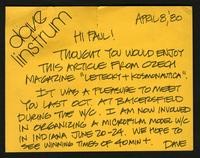 dave
linstrum
APRIL 8, '80
HI PAUL!
THOUGHT YOU WOULD ENJOY
THIS ARTICLE FROM CZECH
MAGAZINE "LETECKY + KOSMONAUTICA".
IT WAS A PLEASURE TO MEET
YOU LAST OCT. AT BAKERSFIELD
DURING THE W/C. I AM NOW INVOLVED
IN ORGANIZING A MICROFILM MODEL W/C
IN INDIANA JUNE 20-24. WE HOPE TO
SEE WINNING TIMES OF 40 MIN+.
DAVE